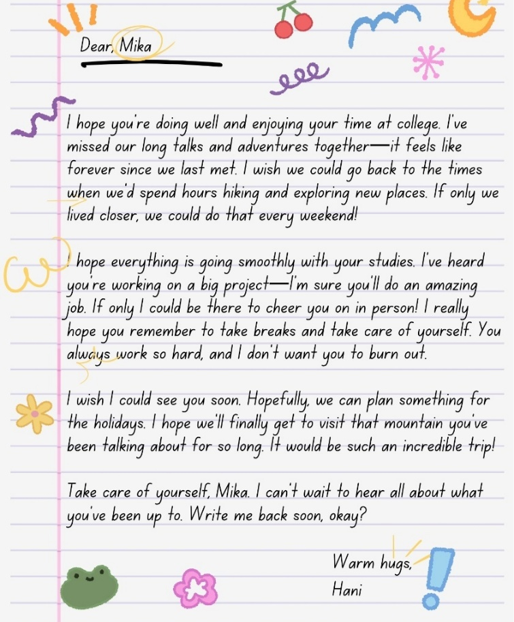 Dear, Mika
I hope you're doing well and enjoying your time at college. I've
missed our long talks and adventures together—it feels like
forever since we last met. I wish we could go back to the times
when we'd spend hours hiking and exploring new places. If only we
lived closer, we could do that every weekend!
I hope everything is going smoothly with your studies. I've heard
you're working on a big project—I'm sure you'll do an amazing
job. If only I could be there to cheer you on in person! I really
hope you remember to take breaks and take care of yourself. You
always work so hard, and I don't want you to burn out.
I wish I could see you soon. Hopefully, we can plan something for
the holidays. I hope we'll finally get to visit that mountain you've
been talking about for so long. It would be such an incredible trip!
Take care of yourself, Mika. I can't wait to hear all about what
you've been up to. Write me back soon, okay?
Warm hugs,
Hani